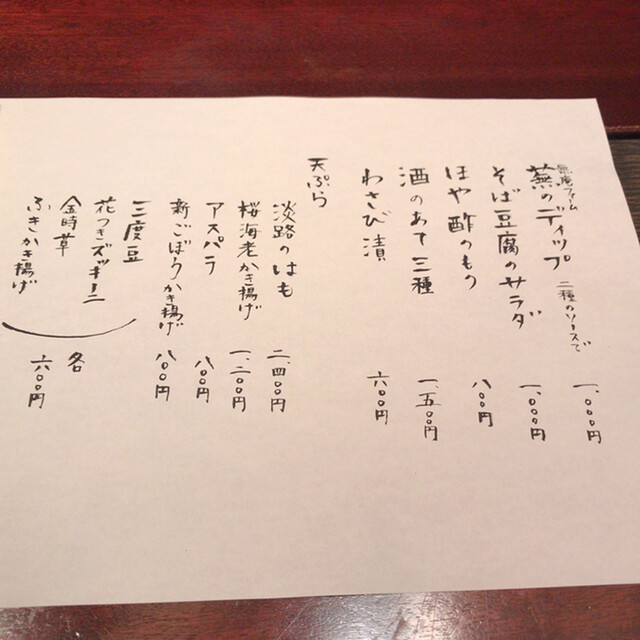 蕪のディップ 二種のソースで 一、〇〇〇円
そば豆腐のサラダ 一、〇〇〇円
ほや酢のもの 八〇〇円
酒のあて三種 一、五〇〇円
わさび漬 六〇〇円
天ぷら
淡路のはも 二、四〇〇円
桜海老かき揚げ 一、二〇〇円
アスパラ 八〇〇円
新ごぼうかき揚げ 八〇〇円
三度豆
花つきズッキーニ
金時草
ふきかき揚げ
各 六〇〇円